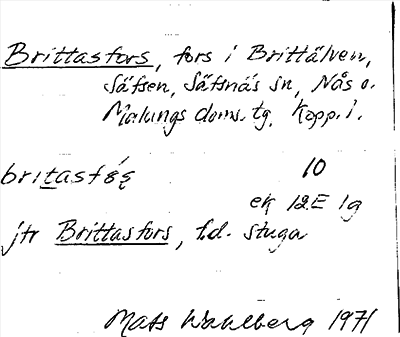 Brittasfors, fors i Brittälven,
Säfsen, Säfsnäs sn, Nås o.
Malungs doms.tg, Kopp. l.
britasfós̨ 10
ek 12E 1g
jfr Brittasfors, f.d. stuga
Mats Wahlberg 1971